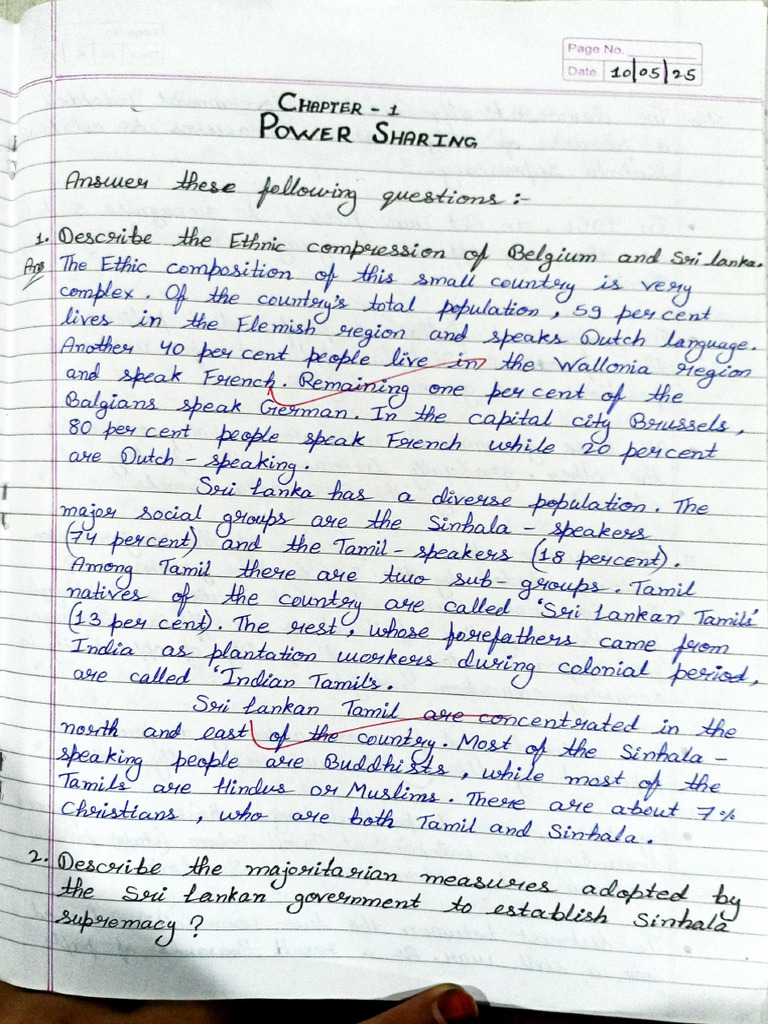 Page No.
Date 10/05/25
CHAPTER - 1
POWER SHARING
Answer these following questions :-
1. Describe the Ethnic compression of Belgium and Sri lanka.
Ans The Ethic composition of this small country is very
complex. Of the country's total population, 59 per cent
lives in the Flemish region and speaks Dutch language.
Another 40 per cent people live in the Wallonia region
and speak French. Remaining one per cent of the
Balgians speak German. In the capital city Brussels,
80 per cent people speak French while 20 percent
are Dutch - speaking.
Sri Lanka has a diverse population. The
major social groups are the Sinhala - speakers
(74 percent) and the Tamil - speakers (18 percent).
Among Tamil there are two sub - groups. Tamil
natives of the country are called 'Sri Lankan Tamils'
(13 per cent). The rest, whose forefathers came from
India as plantation workers during colonial period,
are called 'Indian Tamils.
Sri Lankan Tamil are concentrated in the
north and east of the country. Most of the Sinhala -
speaking people are Buddhists, while most of the
Tamils are Hindus or Muslims. There are about 7%
Christians, who are both Tamil and Sinhala.
2. Describe the majoritarian measures adopted by
the Sri Lankan government to establish Sinhala
supremacy?